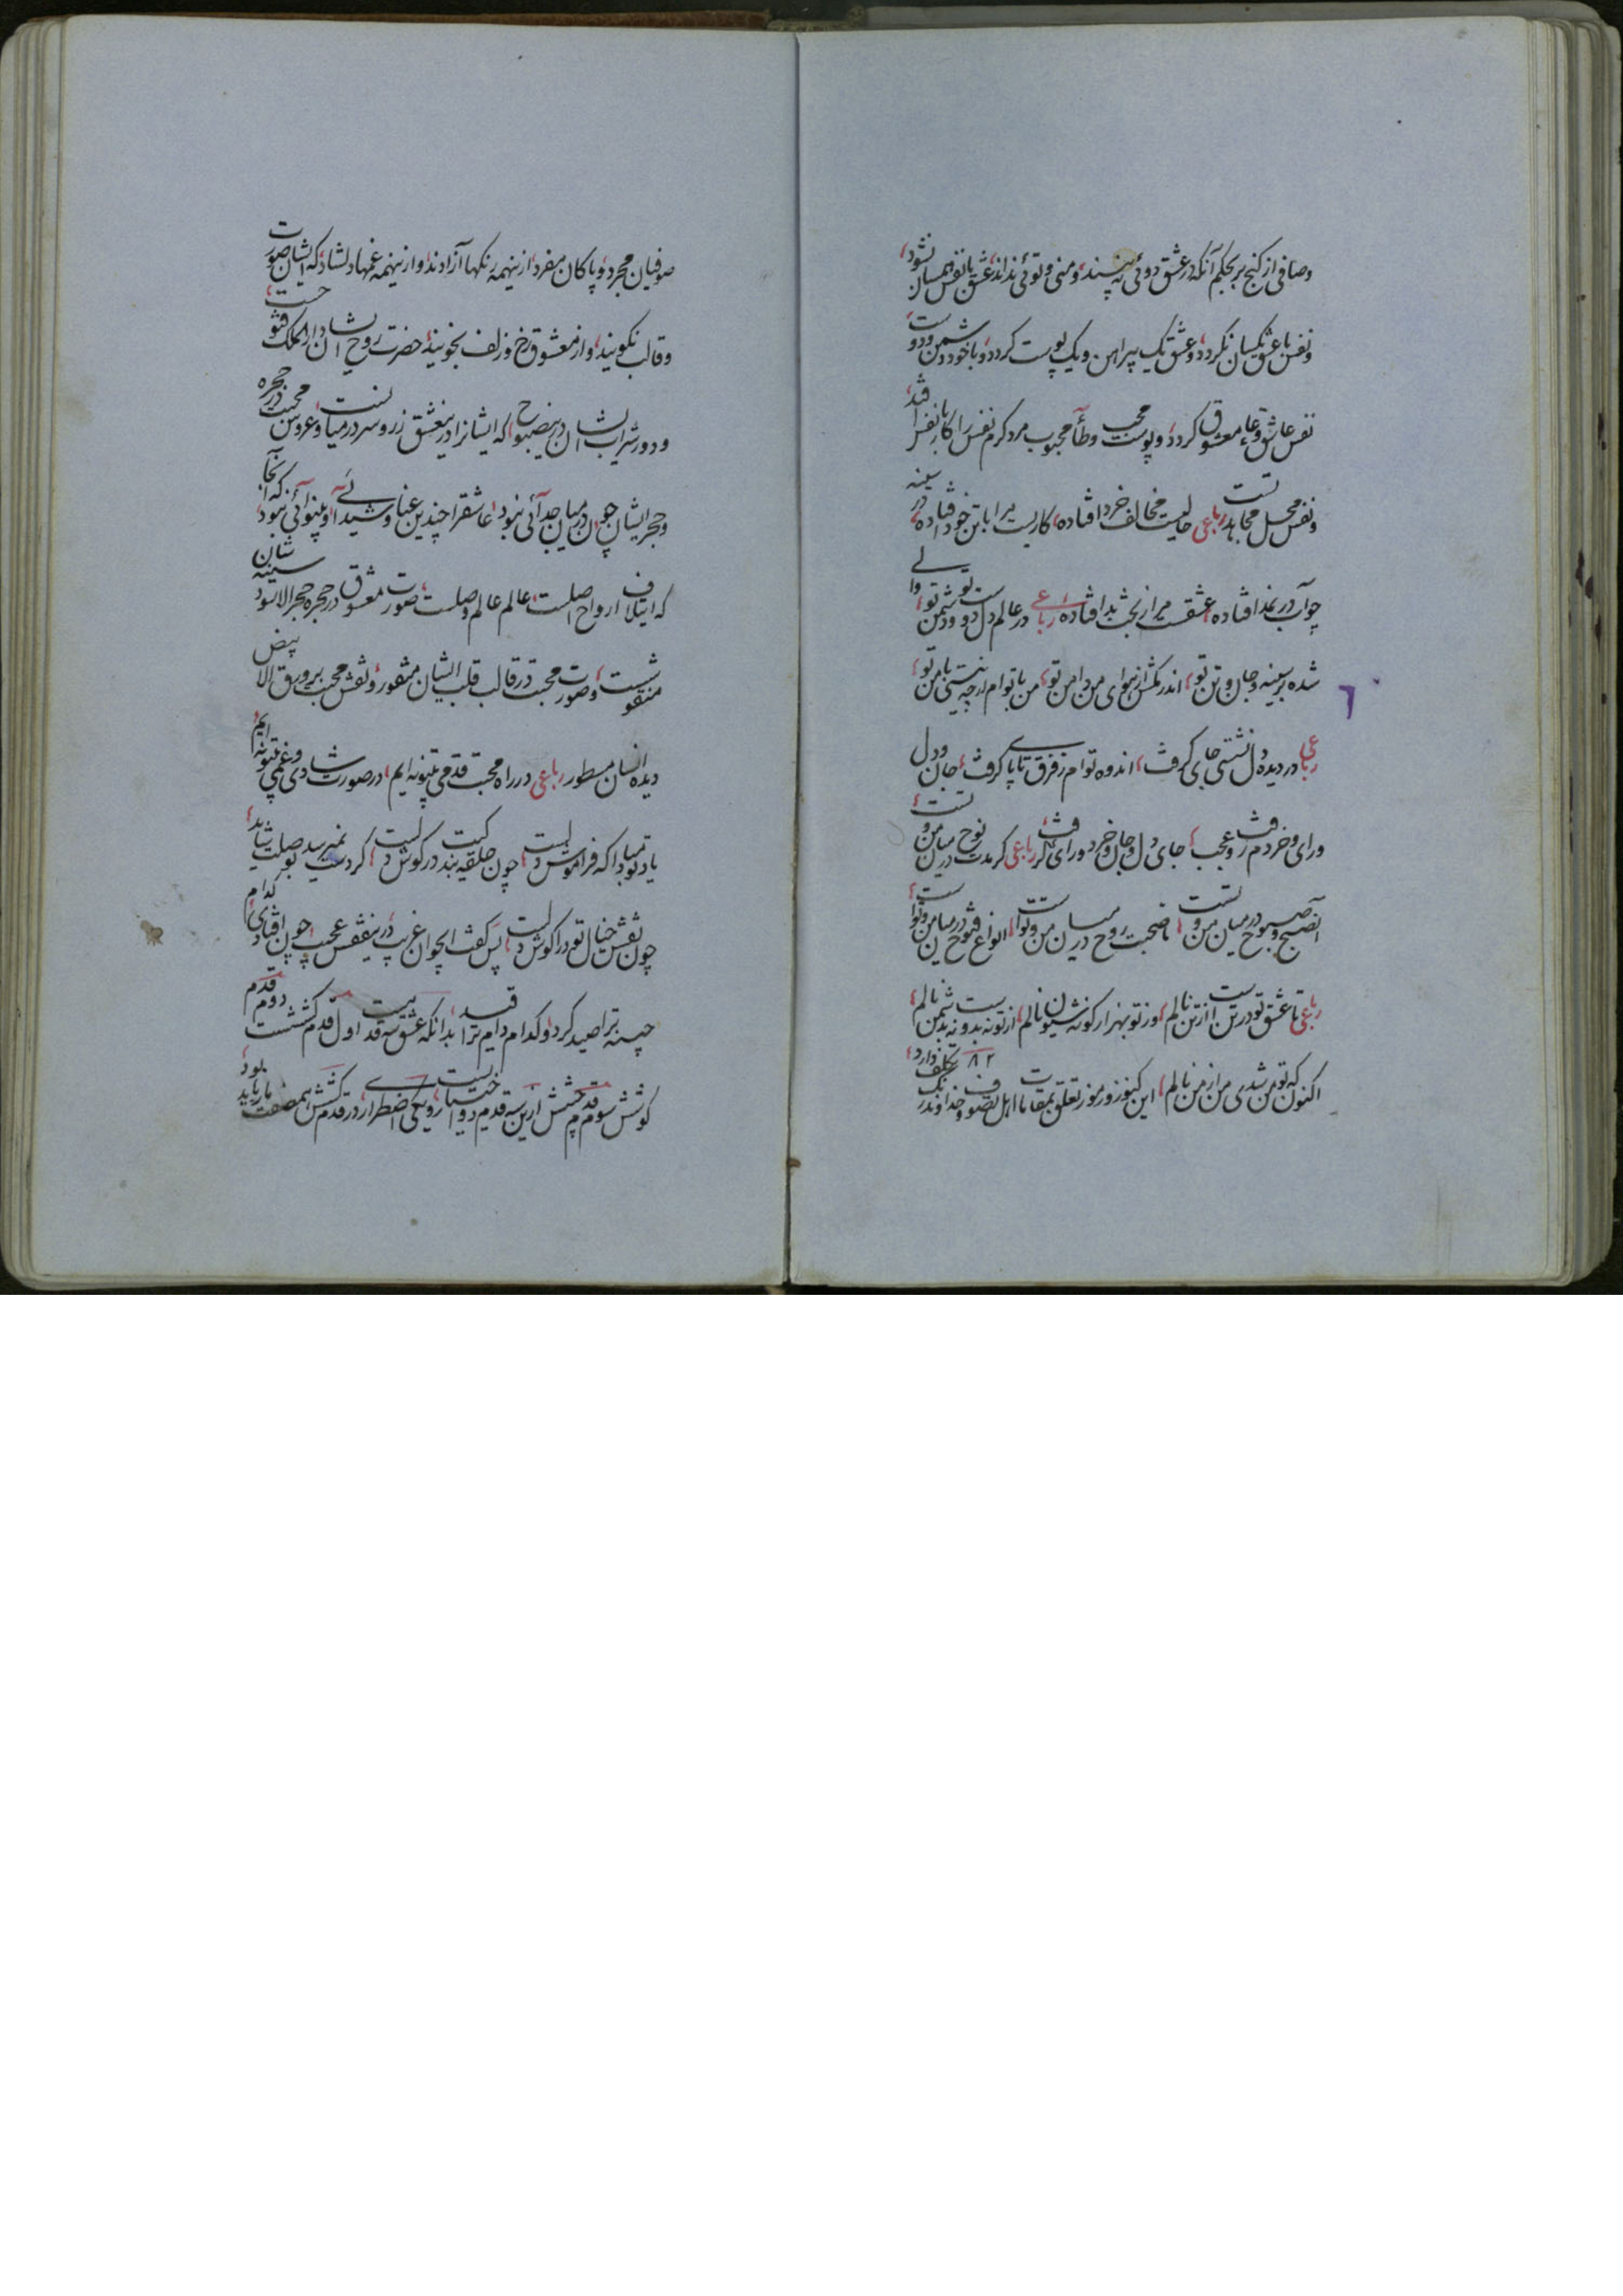 وصافی از کنج بربحکم آنکه در عشق دوئی نه پسندد، ومنی وتوئی نداند، عشق با نفس همسان نشود،
ونفس با عشق یکسان نکردد، وعشق یک پیراهن ویک پوست کردد، وبا خود دشمن ودوست
نفس عاشق وعا معشوق کردد، وپوست محب وطأ محبوب مرد کرم نفس را کار با نفس افتد،
ونفس محل مجاهدتست رباعی حالیست مخالف خرد افتاده، کاریست مرا با تن خود افتاده، در سینه
چو آب در نمد افتاده، عشقت مرا از بخت بد افتاده، رباعی در عالم دل دوست تو ودشمن تو، والی
شده بر سینه وجان وتن تو، اندر کش از هوای من دامن تو، من با تو ام ارچه نیستی با من تو،
رباعی در دیده ودل نشستی جای کرفت، اندوه تو ام ز فرق تا پای کرفت، جان ودل
ورای وخرد رفت وعجب، جای دل وجان وخرد ورای کرفت، رباعی کر مدت نوح در میان من وتست
آصبح وصبوح در میان من وتست، تا صحبت روح در میان من وتست، انواع فتوح در میان من وتست،
رباعی تا عشق تو در تنست از تن نالم، وز تو بهزار کونه شیون نالم، از تو نه بدوست نه بدشمن نالم،
اکنون که تو من شدی من از من نالم، این کنوز ورموز تعلق بمقامات اهل تصوف وخداوند رنک تکلف دارد،
صوفیان مجرد، وپاکان مفرد، از ینهمه رنکها آزادند، واز ینهمه غمها دلشاد، که ایشان صورت
وقالب نکویند، واز معشوق رخ وزلف نجویند، حضرت روح ایشان دارالملک فتوحست،
ودور شراب ایشان در ینصبوح، که ایشانرا در ینعشق زر وسر در میان نیست، وعروس محبت در حجره
وحجر ایشان چون در میان جدائی نبود، عاشقرا چندین عنا وشیدائی وبینوائی نبود، که آنجا
که ایتلاف ارواح اصلست، عالم عالم وصلست، صورت معشوق در حجره حجر الاسود سینه شان
منقوشست، وصورت محبت در قالب قلب ایشان منقور، ونقش محبت بر ورق الابیض
دیده انسان مسطور رباعی در راه محبت قدمی میتونه ایم، در صورت شادی وغمی میتونه ایم،
یاد تو مبادا که فراموش دلیست، چون حلقه بندکیت در کوش دلیست، کر دست نمیرسد بوصلت شاید،
چون نقش خیال تو در آکوش دلیست، پس کفت ایجوان غریب، در ینقفس عجیب چون افتادی، کدام
چینه ترا صید کرد، وکدام دام ترا قید، بدانکه عشق سه قدم بیست اول قدم کششست دوم قدم
کوشش سوم قدم چشش ازین سه قدم دو اختیاریست، ویکی اضطرار، در قدم کشش همه صفت ما رباید بود،